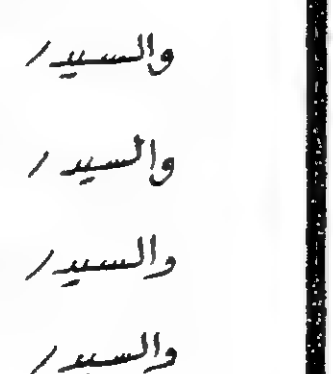 والسيد /
والسيد /
والسيد /
والسيد /